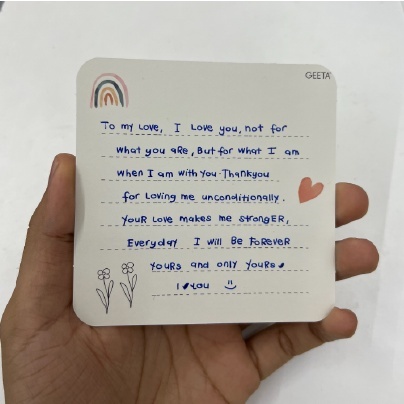 GEETA
To my Love, I Love you, not for
what you aRe, But for what I am
when I am with you. Thankyou
for Loving me unconditionally.
YouR Love makes me strongER,
Everyday I will Be FoReveR
YouRs and only YouRs ♥
I ♥ you :)